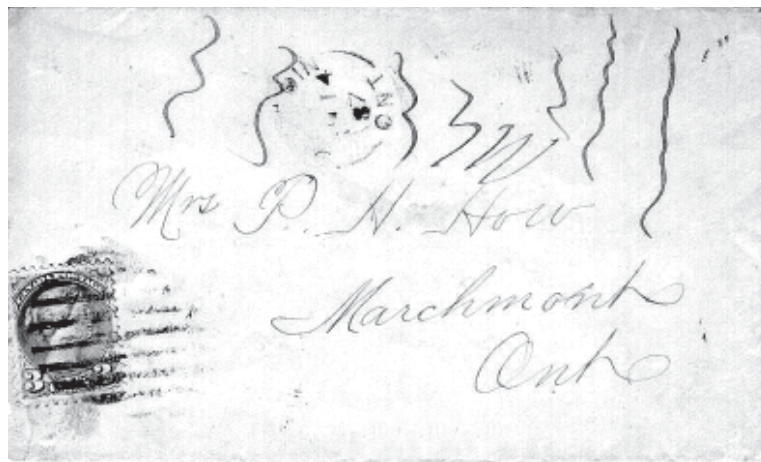 ONT
Mrs P. H. How
Marchmont
Ont
3